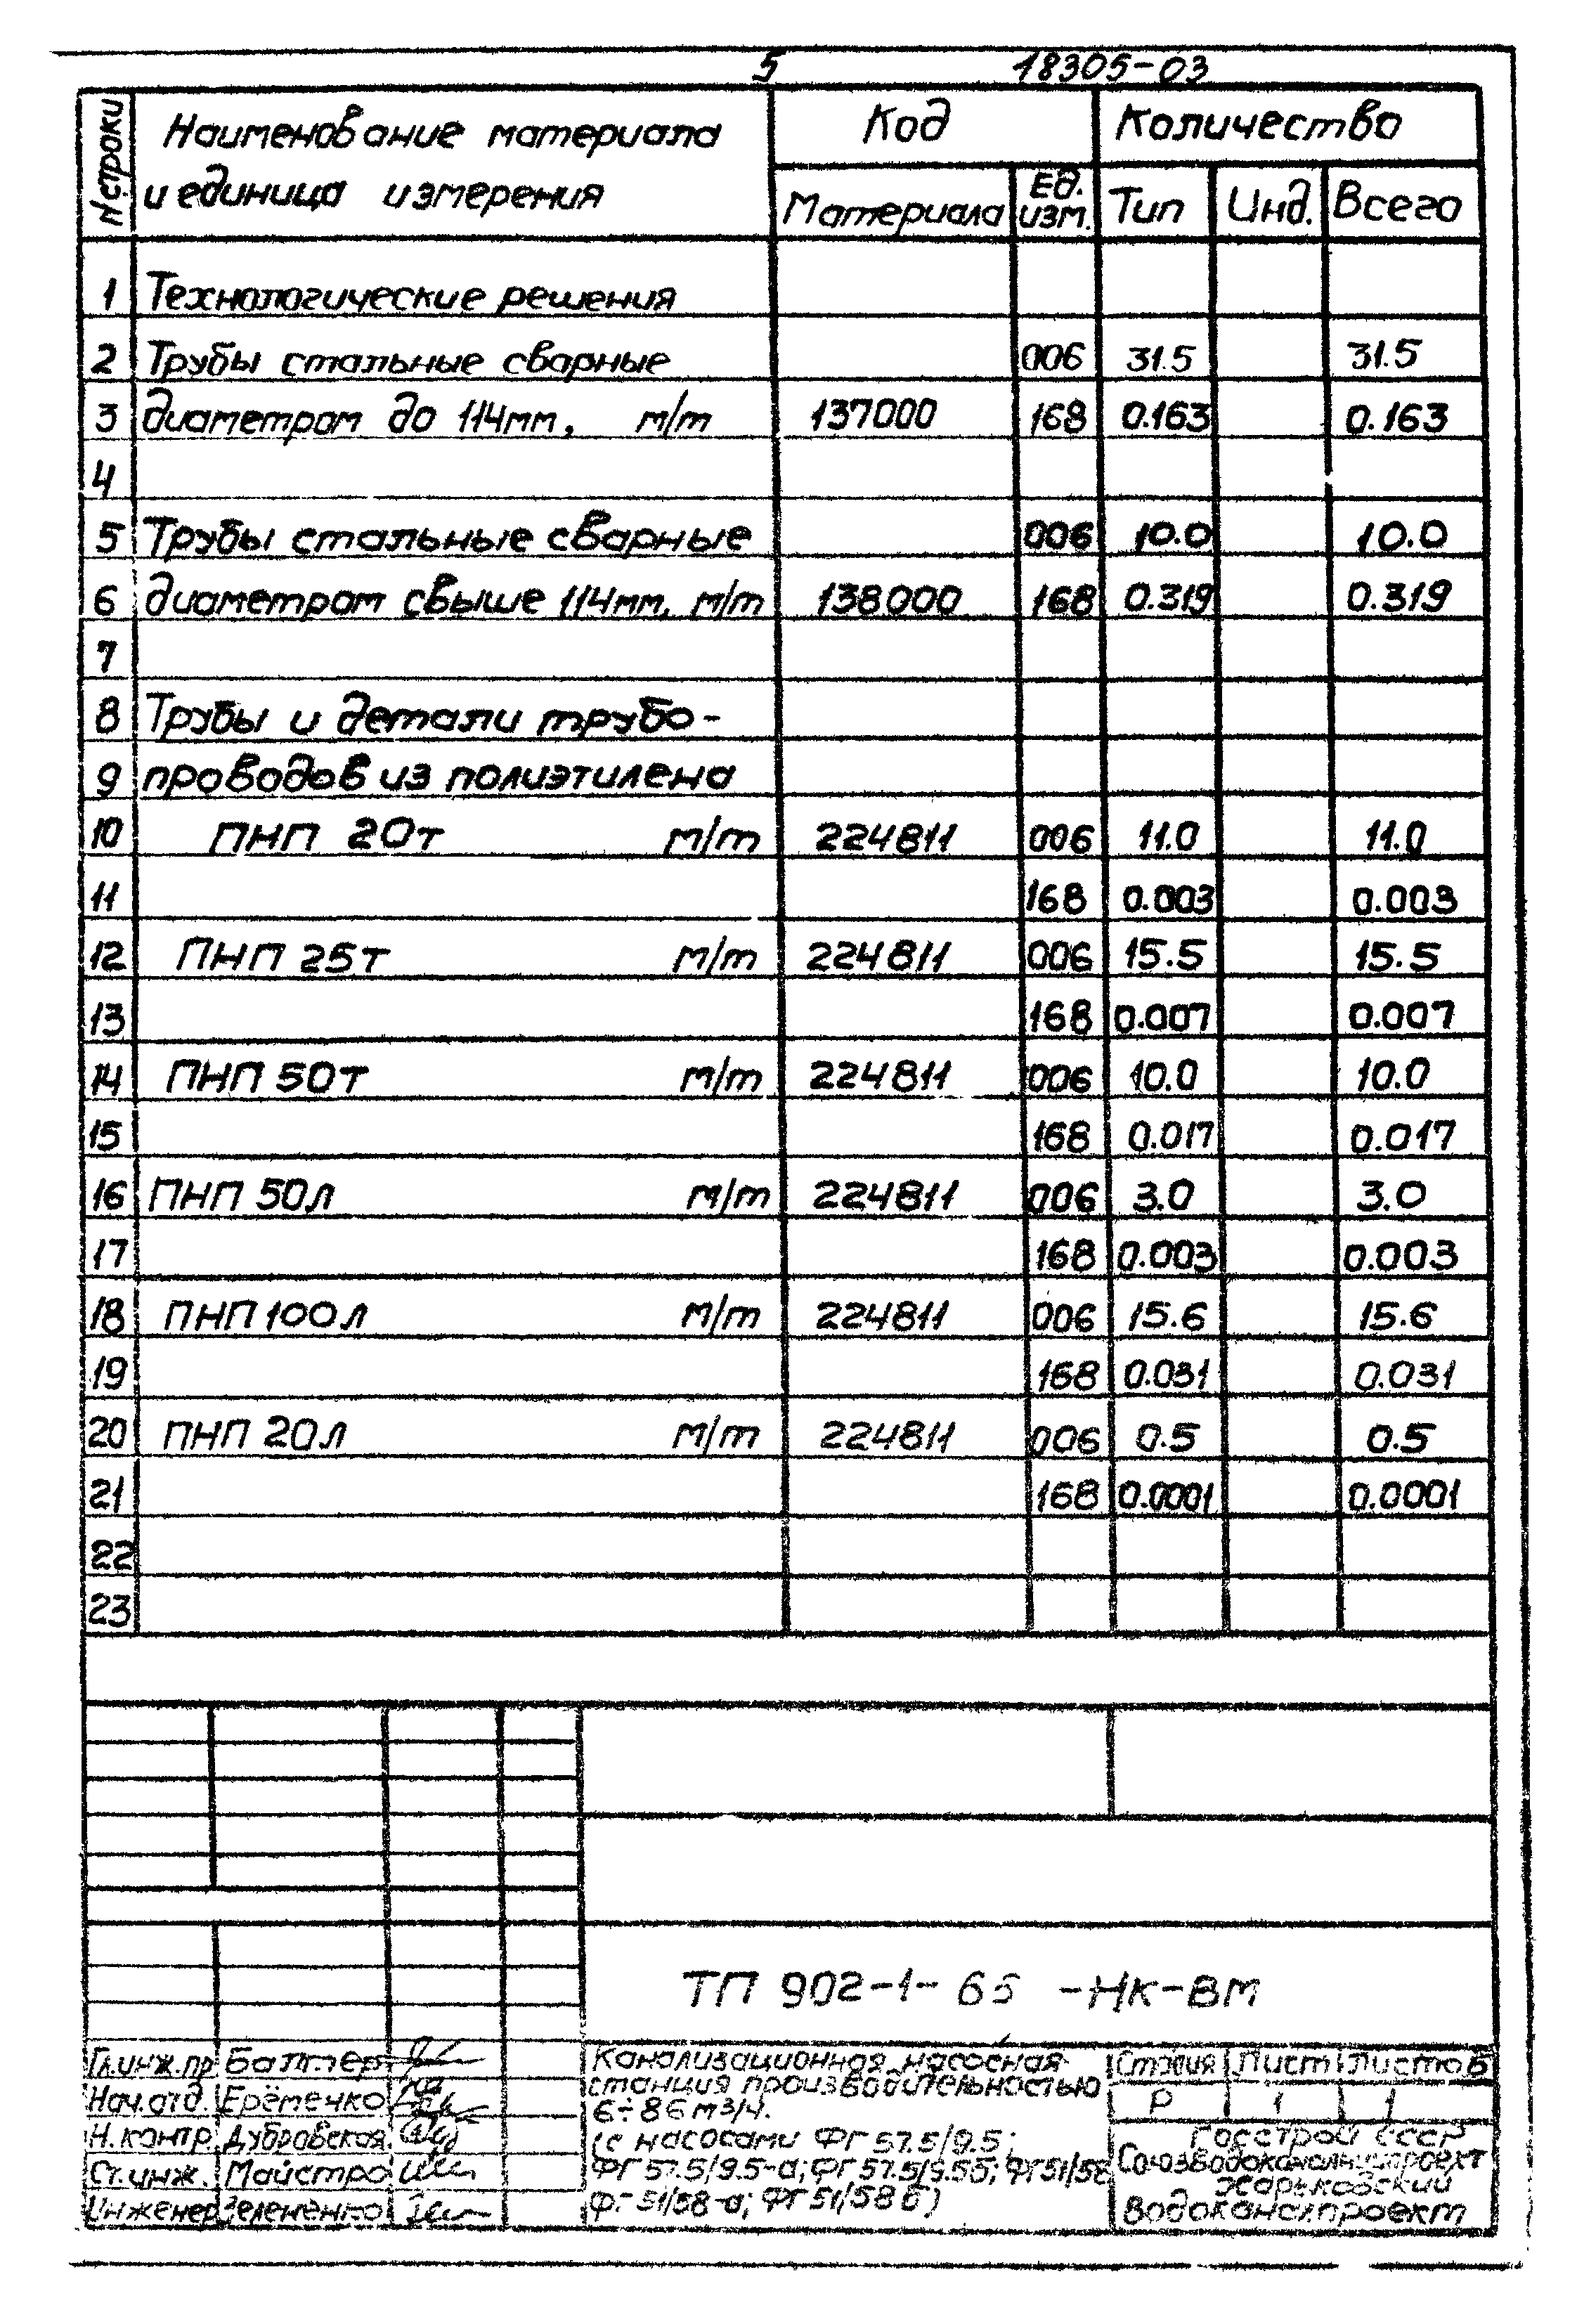 5 18305-03
N строки Наименование материала и единица измерения Код Количество
Материала Ед. изм. Тип Инд. Всего
1 Технологические решения
2 Трубы стальные сварные 006 31.5 31.5
3 диаметром до 114мм, м/т 137000 168 0.163 0.163
4
5 Трубы стальные сварные 006 10.0 10.0
6 диаметром свыше 114мм, м/т 138000 168 0.319 0.319
7
8 Трубы и детали трубо-
9 проводов из полиэтилена
10 ПНП 20т м/т 224811 006 11.0 11.0
11 168 0.003 0.003
12 ПНП 25т м/т 224811 006 15.5 15.5
13 168 0.007 0.007
14 ПНП 50т м/т 224811 006 10.0 10.0
15 168 0.017 0.017
16 ПНП 50л м/т 224811 006 3.0 3.0
17 168 0.003 0.003
18 ПНП 100л м/т 224811 006 15.6 15.6
19 168 0.031 0.031
20 ПНП 20л м/т 224811 006 0.5 0.5
21 168 0.0001 0.0001
22
23
ТП 902-1- -НК-ВМ
Гл.инж.пр
Нач.отд. Ерёменко
Н.контр. Дубровская
Ст.инж. Майстро
Инженер Зелененко
Канализационная насосная
станция производительностью
6÷86 м3/ч.
(с насосами ФГ 57.5/9.5;
ФГ 57.5/9.5-а; ФГ 57.5/9.5б; ФГ 51/58
ФГ 51/58-а; ФГ 51/58 б)
Стадия Лист Листов
Р 1 1
Госстрой СССР
Союзводоканалниипроект
Харьковский
Водоканалпроект